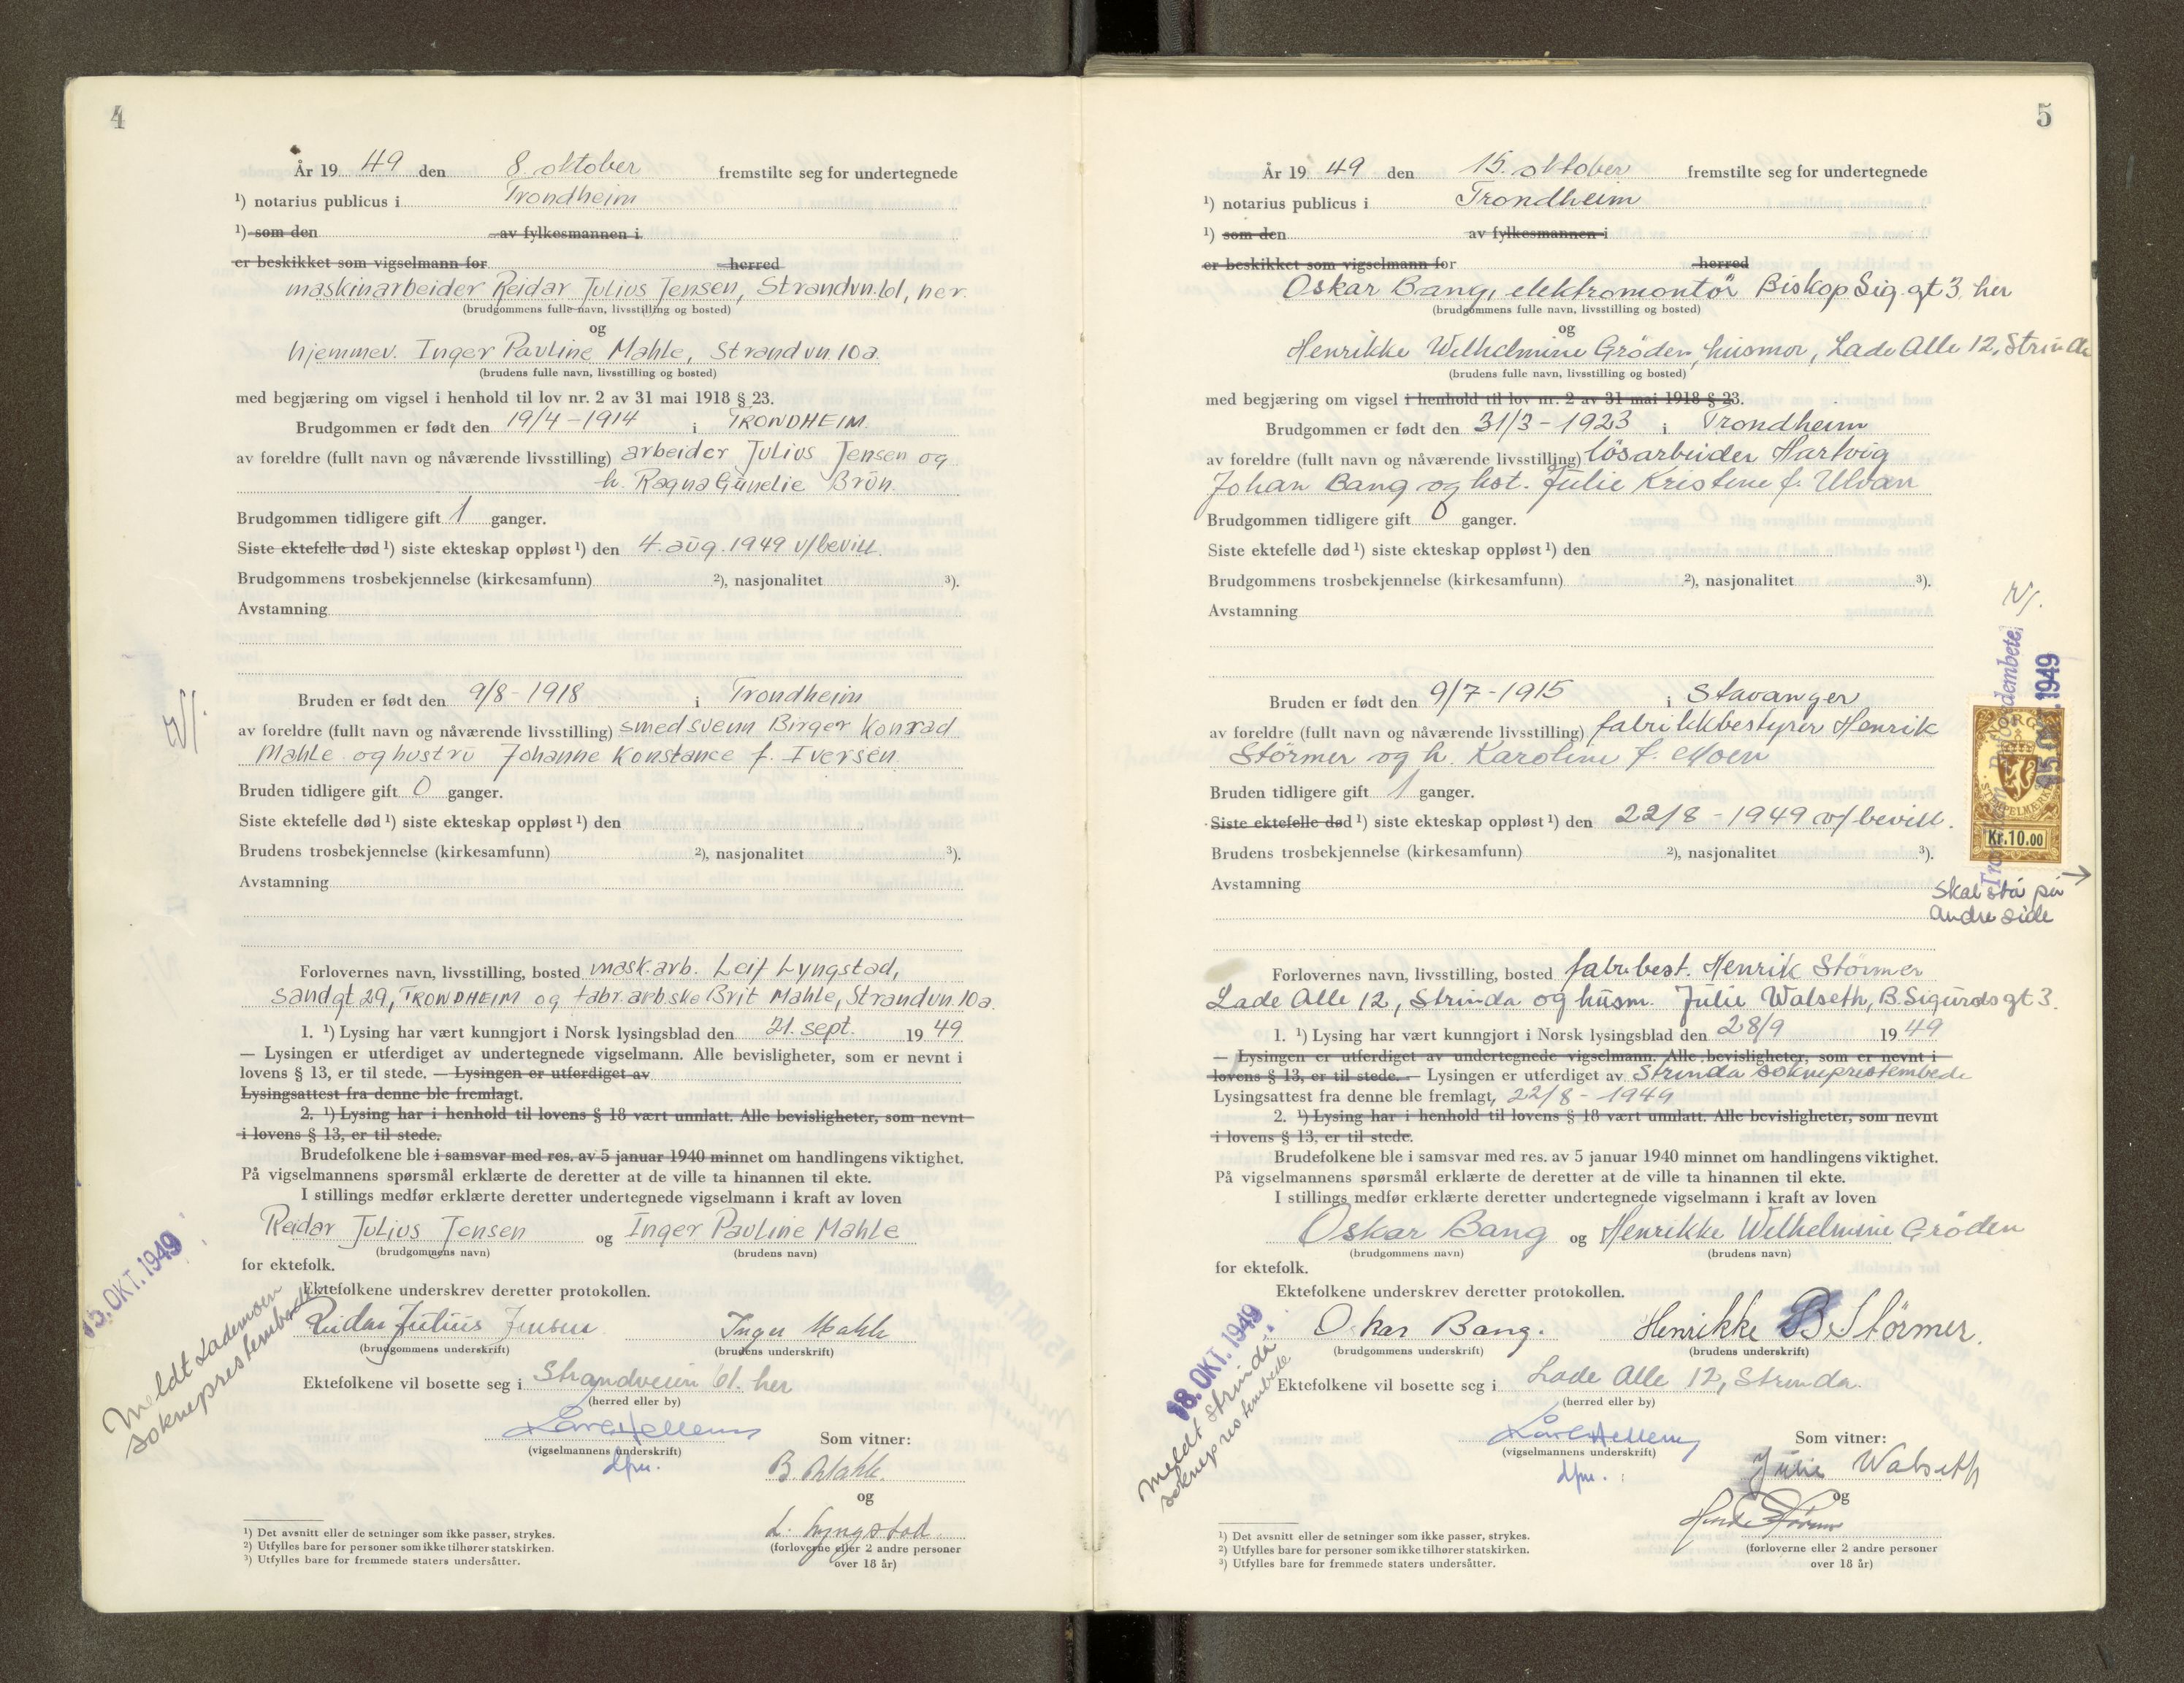 4
År 19 49 den 8. oktober fremstilte seg for undertegnede
¹) notarius publicus i Trondheim
¹) som den av fylkesmannen i
er beskikket som vigselmann for herred
maskinarbeider Reidar Julius Jensen, Strandvn. 61, her.
(brudgommens fulle navn, livsstilling og bosted)
og
hjemmev. Inger Pauline Mahle, Strandvn. 10a.
(brudens fulle navn, livsstilling og bosted)
med begjæring om vigsel i henhold til lov nr. 2 av 31 mai 1918 § 23.
Brudgommen er født den 19/4 - 1914 i TRONDHEIM.
av foreldre (fullt navn og nåværende livsstilling) arbeider Julius Jensen og
h. Ragna Gunelie Brón.
Brudgommen tidligere gift 1 ganger.
Siste ektefelle død ¹) siste ekteskap oppløst ¹) den 4. aug. 1949 v/bevill.
Brudgommens trosbekjennelse (kirkesamfunn) ²), nasjonalitet ³).
Avstamning
Bruden er født den 9/8 - 1918 i Trondheim
av foreldre (fullt navn og nåværende livsstilling) smedsvenn Birger Konrad
Mahle og hustru Johanne Konstance f. Iversen.
Bruden tidligere gift 0 ganger.
Siste ektefelle død ¹) siste ekteskap oppløst ¹) den
Brudens trosbekjennelse (kirkesamfunn) ²), nasjonalitet ³).
Avstamning
Forlovernes navn, livsstilling, bosted mask.arb. Leif Lyngstad,
Sandgt 29, TRONDHEIM og fabr.arb.ske Brit Mahle, Strandvn. 10a.
1. ¹) Lysing har vært kunngjort i Norsk lysingsblad den 21. sept. 19 49
— Lysingen er utferdiget av undertegnede vigselmann. Alle bevisligheter, som er nevnt i
lovens § 13, er til stede. — Lysingen er utferdiget av
Lysingsattest fra denne ble fremlagt.
2. ¹) Lysing har i henhold til lovens § 18 vært unnlatt. Alle bevisligheter, som nevnt
i lovens § 13, er til stede.
Brudefolkene ble i samsvar med res. av 5 januar 1940 minnet om handlingens viktighet.
På vigselmannens spørsmål erklærte de deretter at de ville ta hinannen til ekte.
I stillings medfør erklærte deretter undertegnede vigselmann i kraft av loven
Reidar Julius Jensen og Inger Pauline Mahle
(brudgommens navn) (brudens navn)
for ektefolk.
Ektefolkene underskrev deretter protokollen.
Reidar Julius Jensen Inger Mahle
(brudgommens underskrift) (brudens underskrift)
Ektefolkene vil bosette seg i Strandveien 61. her
(herred eller by)
(vigselmannens underskrift)
dfm.
Som vitner:
B. Mahle.
og
L. Lyngstad.
(forloverne eller 2 andre personer
over 18 år)
¹) Det avsnitt eller de setninger som ikke passer, strykes.
²) Utfylles bare for personer som ikke tilhører statskirken.
³) Utfylles bare for fremmede staters undersåtter.
15. OKT. 1949
Meldt Lademoen
sokneprestembede
5
År 19 49 den 15. oktober fremstilte seg for undertegnede
¹) notarius publicus i Trondheim
¹) som den av fylkesmannen i
er beskikket som vigselmann for herred
Oskar Bang, elektromontör Biskop Sig. gt 3, her
(brudgommens fulle navn, livsstilling og bosted)
og
Henrikke Wilhelmine Gröden, husmor, Lade Alle 12, Strinda
(brudens fulle navn, livsstilling og bosted)
med begjæring om vigsel i henhold til lov nr. 2 av 31 mai 1918 § 23.
Brudgommen er født den 31/3 - 1923 i Trondheim
av foreldre (fullt navn og nåværende livsstilling) lösarbeider Hartvig
Johan Bang og hst. Julie Kristine f. Ulvan
Brudgommen tidligere gift 0 ganger.
Siste ektefelle død ¹) siste ekteskap oppløst ¹) den
Brudgommens trosbekjennelse (kirkesamfunn) ²), nasjonalitet ³).
Avstamning
Bruden er født den 9/7 - 1915 i Stavanger
av foreldre (fullt navn og nåværende livsstilling) fabrikkbestyrer Henrik
Störmer og h. Karoline f. Moen
Bruden tidligere gift 1 ganger.
Siste ektefelle død ¹) siste ekteskap oppløst ¹) den 22/8 - 1949 v/bevill.
Brudens trosbekjennelse (kirkesamfunn) ²), nasjonalitet ³).
Avstamning
NORGE
STEMPELMERKE
Kr. 10.00
15. OKT. 1949
Skal stå på
andre side
Forlovernes navn, livsstilling, bosted fabr.best. Henrik Störmer
Lade Alle 12, Strinda og husm. Julie Walseth, B. Sigurds gt 3.
1. ¹) Lysing har vært kunngjort i Norsk lysingsblad den 28/9 19 49
— Lysingen er utferdiget av undertegnede vigselmann. Alle bevisligheter, som er nevnt i
lovens § 13, er til stede. — Lysingen er utferdiget av Strinda sokneprestembede
Lysingsattest fra denne ble fremlagt, 22/8 - 1949
2. ¹) Lysing har i henhold til lovens § 18 vært unnlatt. Alle bevisligheter, som nevnt
i lovens § 13, er til stede.
Brudefolkene ble i samsvar med res. av 5 januar 1940 minnet om handlingens viktighet.
På vigselmannens spørsmål erklærte de deretter at de ville ta hinannen til ekte.
I stillings medfør erklærte deretter undertegnede vigselmann i kraft av loven
Oskar Bang og Henrikke Wilhelmine Gröden
(brudgommens navn) (brudens navn)
for ektefolk.
Ektefolkene underskrev deretter protokollen.
Oskar Bang. Henrikke B. Störmer.
(brudgommens underskrift) (brudens underskrift)
Ektefolkene vil bosette seg i Lade Alle 12, Strinda.
(herred eller by)
(vigselmannens underskrift)
dfm.
Som vitner:
Julie Walseth
og
(forloverne eller 2 andre personer
over 18 år)
¹) Det avsnitt eller de setninger som ikke passer, strykes.
²) Utfylles bare for personer som ikke tilhører statskirken.
³) Utfylles bare for fremmede staters undersåtter.
18. OKT. 1949
Meldt Strinda
sokneprestembede